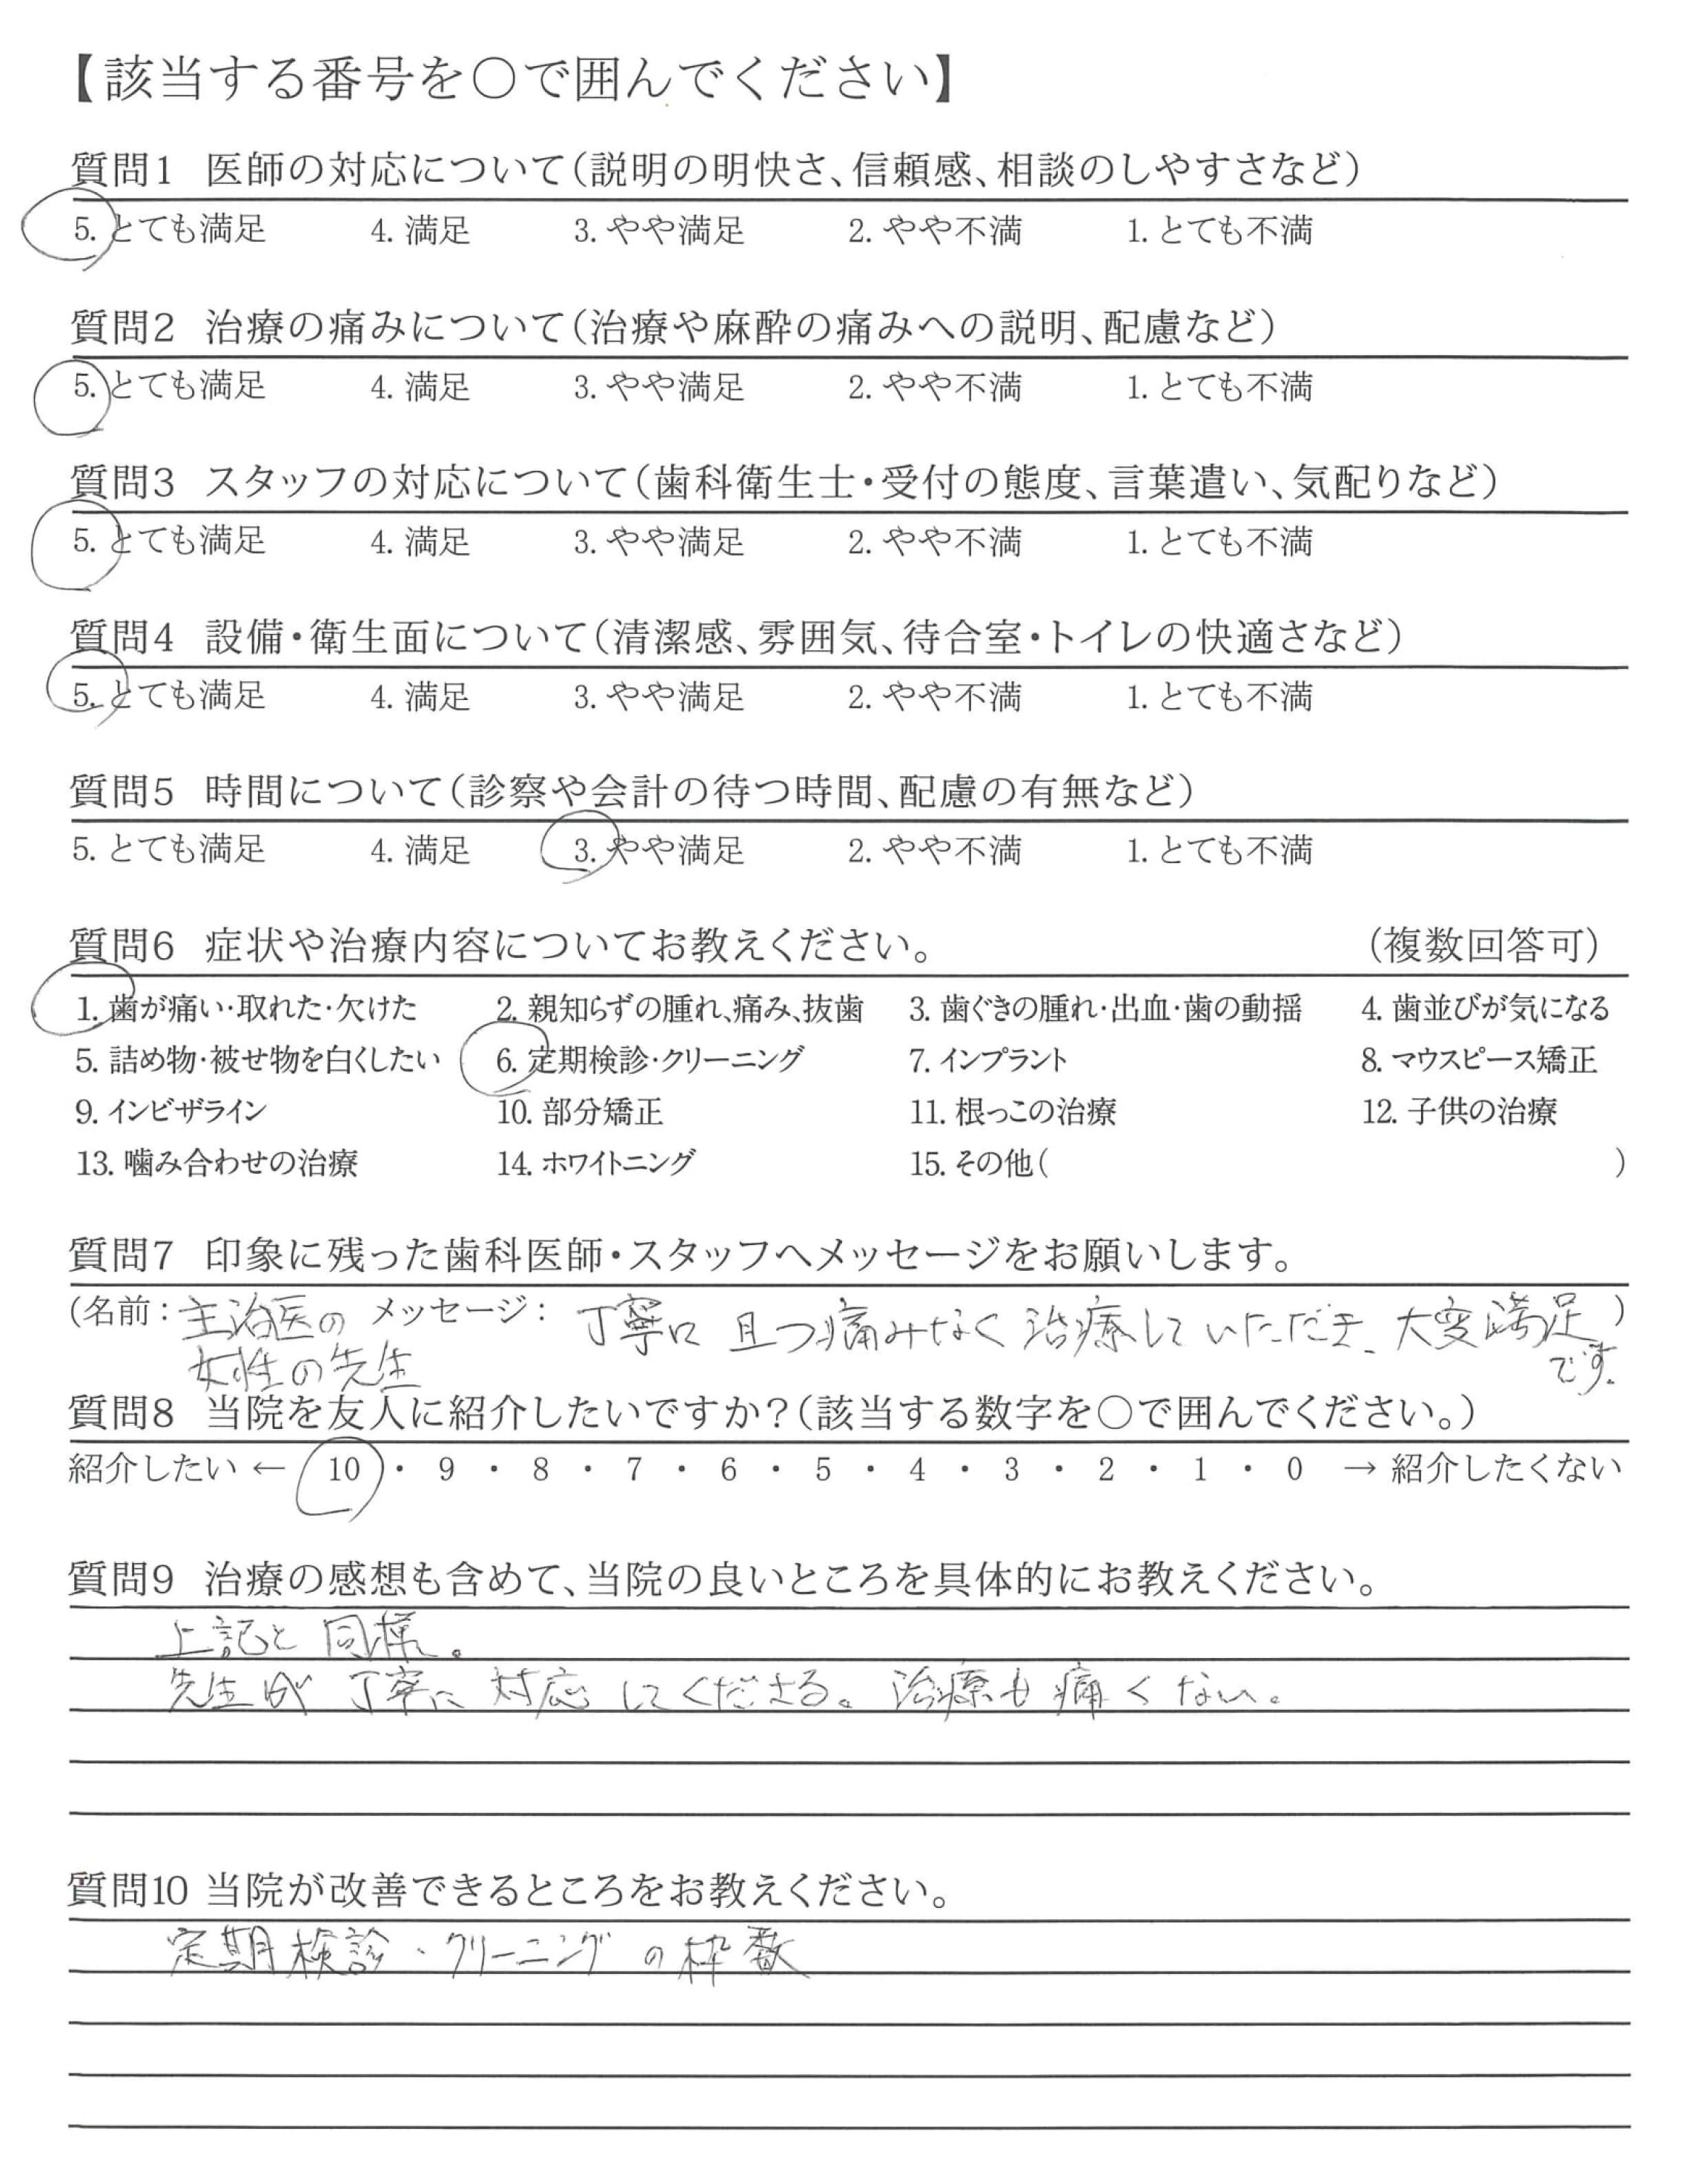 【該当する番号を○で囲んでください】
質問1 医師の対応について(説明の明快さ、信頼感、相談のしやすさなど)
5. とても満足 4. 満足 3. やや満足 2. やや不満 1. とても不満
質問2 治療の痛みについて(治療や麻酔の痛みへの説明、配慮など)
5. とても満足 4. 満足 3. やや満足 2. やや不満 1. とても不満
質問3 スタッフの対応について(歯科衛生士・受付の態度、言葉遣い、気配りなど)
5. とても満足 4. 満足 3. やや満足 2. やや不満 1. とても不満
質問4 設備・衛生面について(清潔感、雰囲気、待合室・トイレの快適さなど)
5. とても満足 4. 満足 3. やや満足 2. やや不満 1. とても不満
質問5 時間について(診察や会計の待つ時間、配慮の有無など)
5. とても満足 4. 満足 3. やや満足 2. やや不満 1. とても不満
質問6 症状や治療内容についてお教えください。 (複数回答可)
1. 歯が痛い・取れた・欠けた 2. 親知らずの腫れ、痛み、抜歯 3. 歯ぐきの腫れ・出血・歯の動揺 4. 歯並びが気になる
5. 詰め物・被せ物を白くしたい 6. 定期検診・クリーニング 7. インプラント 8. マウスピース矯正
9. インビザライン 10. 部分矯正 11. 根っこの治療 12. 子供の治療
13. 噛み合わせの治療 14. ホワイトニング 15. その他( )
質問7 印象に残った歯科医師・スタッフへメッセージをお願いします。
(名前: 主治医の メッセージ: 丁寧に且つ痛みなく治療していただき、大変満足 )
女性の先生 です。
質問8 当院を友人に紹介したいですか?(該当する数字を○で囲んでください。)
紹介したい ← 10 ・ 9 ・ 8 ・ 7 ・ 6 ・ 5 ・ 4 ・ 3 ・ 2 ・ 1 ・ 0 → 紹介したくない
質問9 治療の感想も含めて、当院の良いところを具体的にお教えください。
上記と同様。
先生が丁寧に対応してくださる。治療も痛くない。
質問10 当院が改善できるところをお教えください。
定期検診・クリーニングの枠数